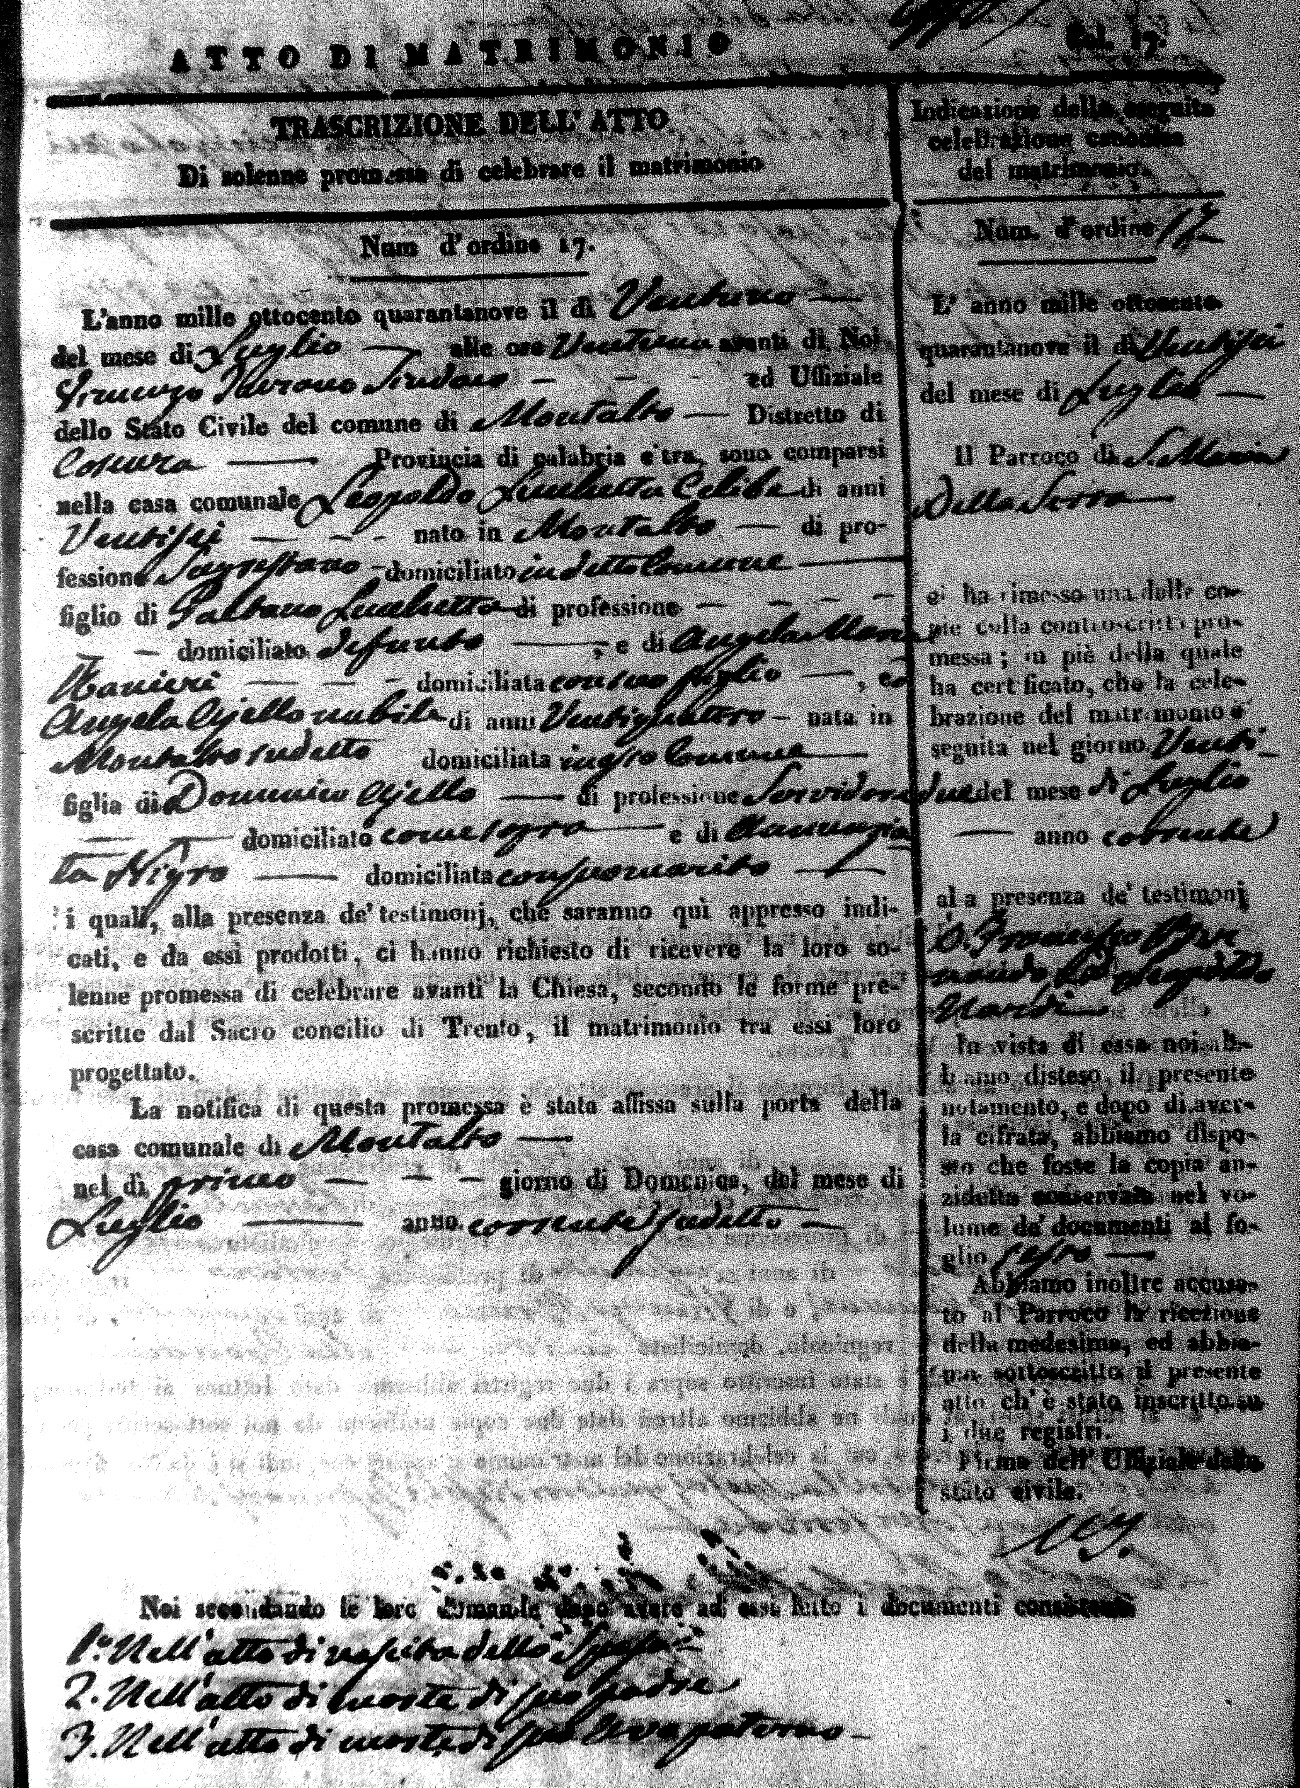 ATTO DI MATRIMONIO
Fol. 17.
TRASCRIZIONE DELL' ATTO
Di solenne promessa di celebrare il matrimonio
Num d'ordine 17.
L'anno mille ottocento quarantanove il di Ventuno
del mese di Luglio alle ore Ventuna avanti di Noi
Sindaco ed Uffiziale
dello Stato Civile del comune di Montalto Distretto di
Cosenza Provincia di calabria citra, sono comparsi
nella casa comunale Leopoldo Celibe di anni
Ventisei nato in Montalto di pro-
fessione Sagrestano domiciliato in detto Comune
figlio di Gaetano di professione
domiciliato defunto, e di Angela Maria
Ranieri domiciliata con suo figlio, ed
Angela Ajello nubile di anni Ventiquattro nata in
Montalto sudetto domiciliata in Comune
figlia di Domenico Ajello di professione Servidore
domiciliato come sopra e di Annunzia
ta Nigro domiciliata con suo marito
i quali, alla presenza de' testimonj, che saranno quì appresso indi-
cati, e da essi prodotti, ci hanno richiesto di ricevere la loro so-
lenne promessa di celebrare avanti la Chiesa, secondo le forme pre-
scritte dal Sacro concilio di Trento, il matrimonio tra essi loro
progettato.
La notifica di questa promessa è stata affissa sulla porta della
casa comunale di Montalto
nel dì primo giorno di Domenica, del mese di
Luglio anno corrente sudetto
Indicazione della seguita
celebrazione canonica
del matrimonio.
Num. d'ordine 17
L' anno mille ottocento
quarantanove il di Ventisei
del mese di Luglio
Il Parroco di S. Maria
Della Serra
ci ha rimesso una delle co-
pie della controscritta pro-
messa; in piè della quale
ha certificato, che la cele-
brazione del matrimonio è
seguita nel giorno Venti-
due del mese di Luglio
anno corrente
alla presenza de' testimonj
D. Francesco
Leopoldo
Nardi
In vista di essa noi ab-
biamo disteso il presente
notamento, e dopo di aver-
la cifrata, abbiamo dispo-
sto che fosse la copia an-
zidetta conservata nel vo-
lume de' documenti al fo-
glio
Abbiamo inoltre accusa-
to al Parroco la ricezione
della medesima, ed abbia-
mo sottoscritto il presente
atto ch' è stato inscritto su
i due registri.
Firma dell' Uffiziale dello
stato civile.
Noi secondando le loro domande dopo avere ad essi letto i documenti consistenti
1.° Nell'atto di nascita dello Sposo
2. Nell'atto di morte di suo padre
3. Nell'atto di morte di suo Avo paterno